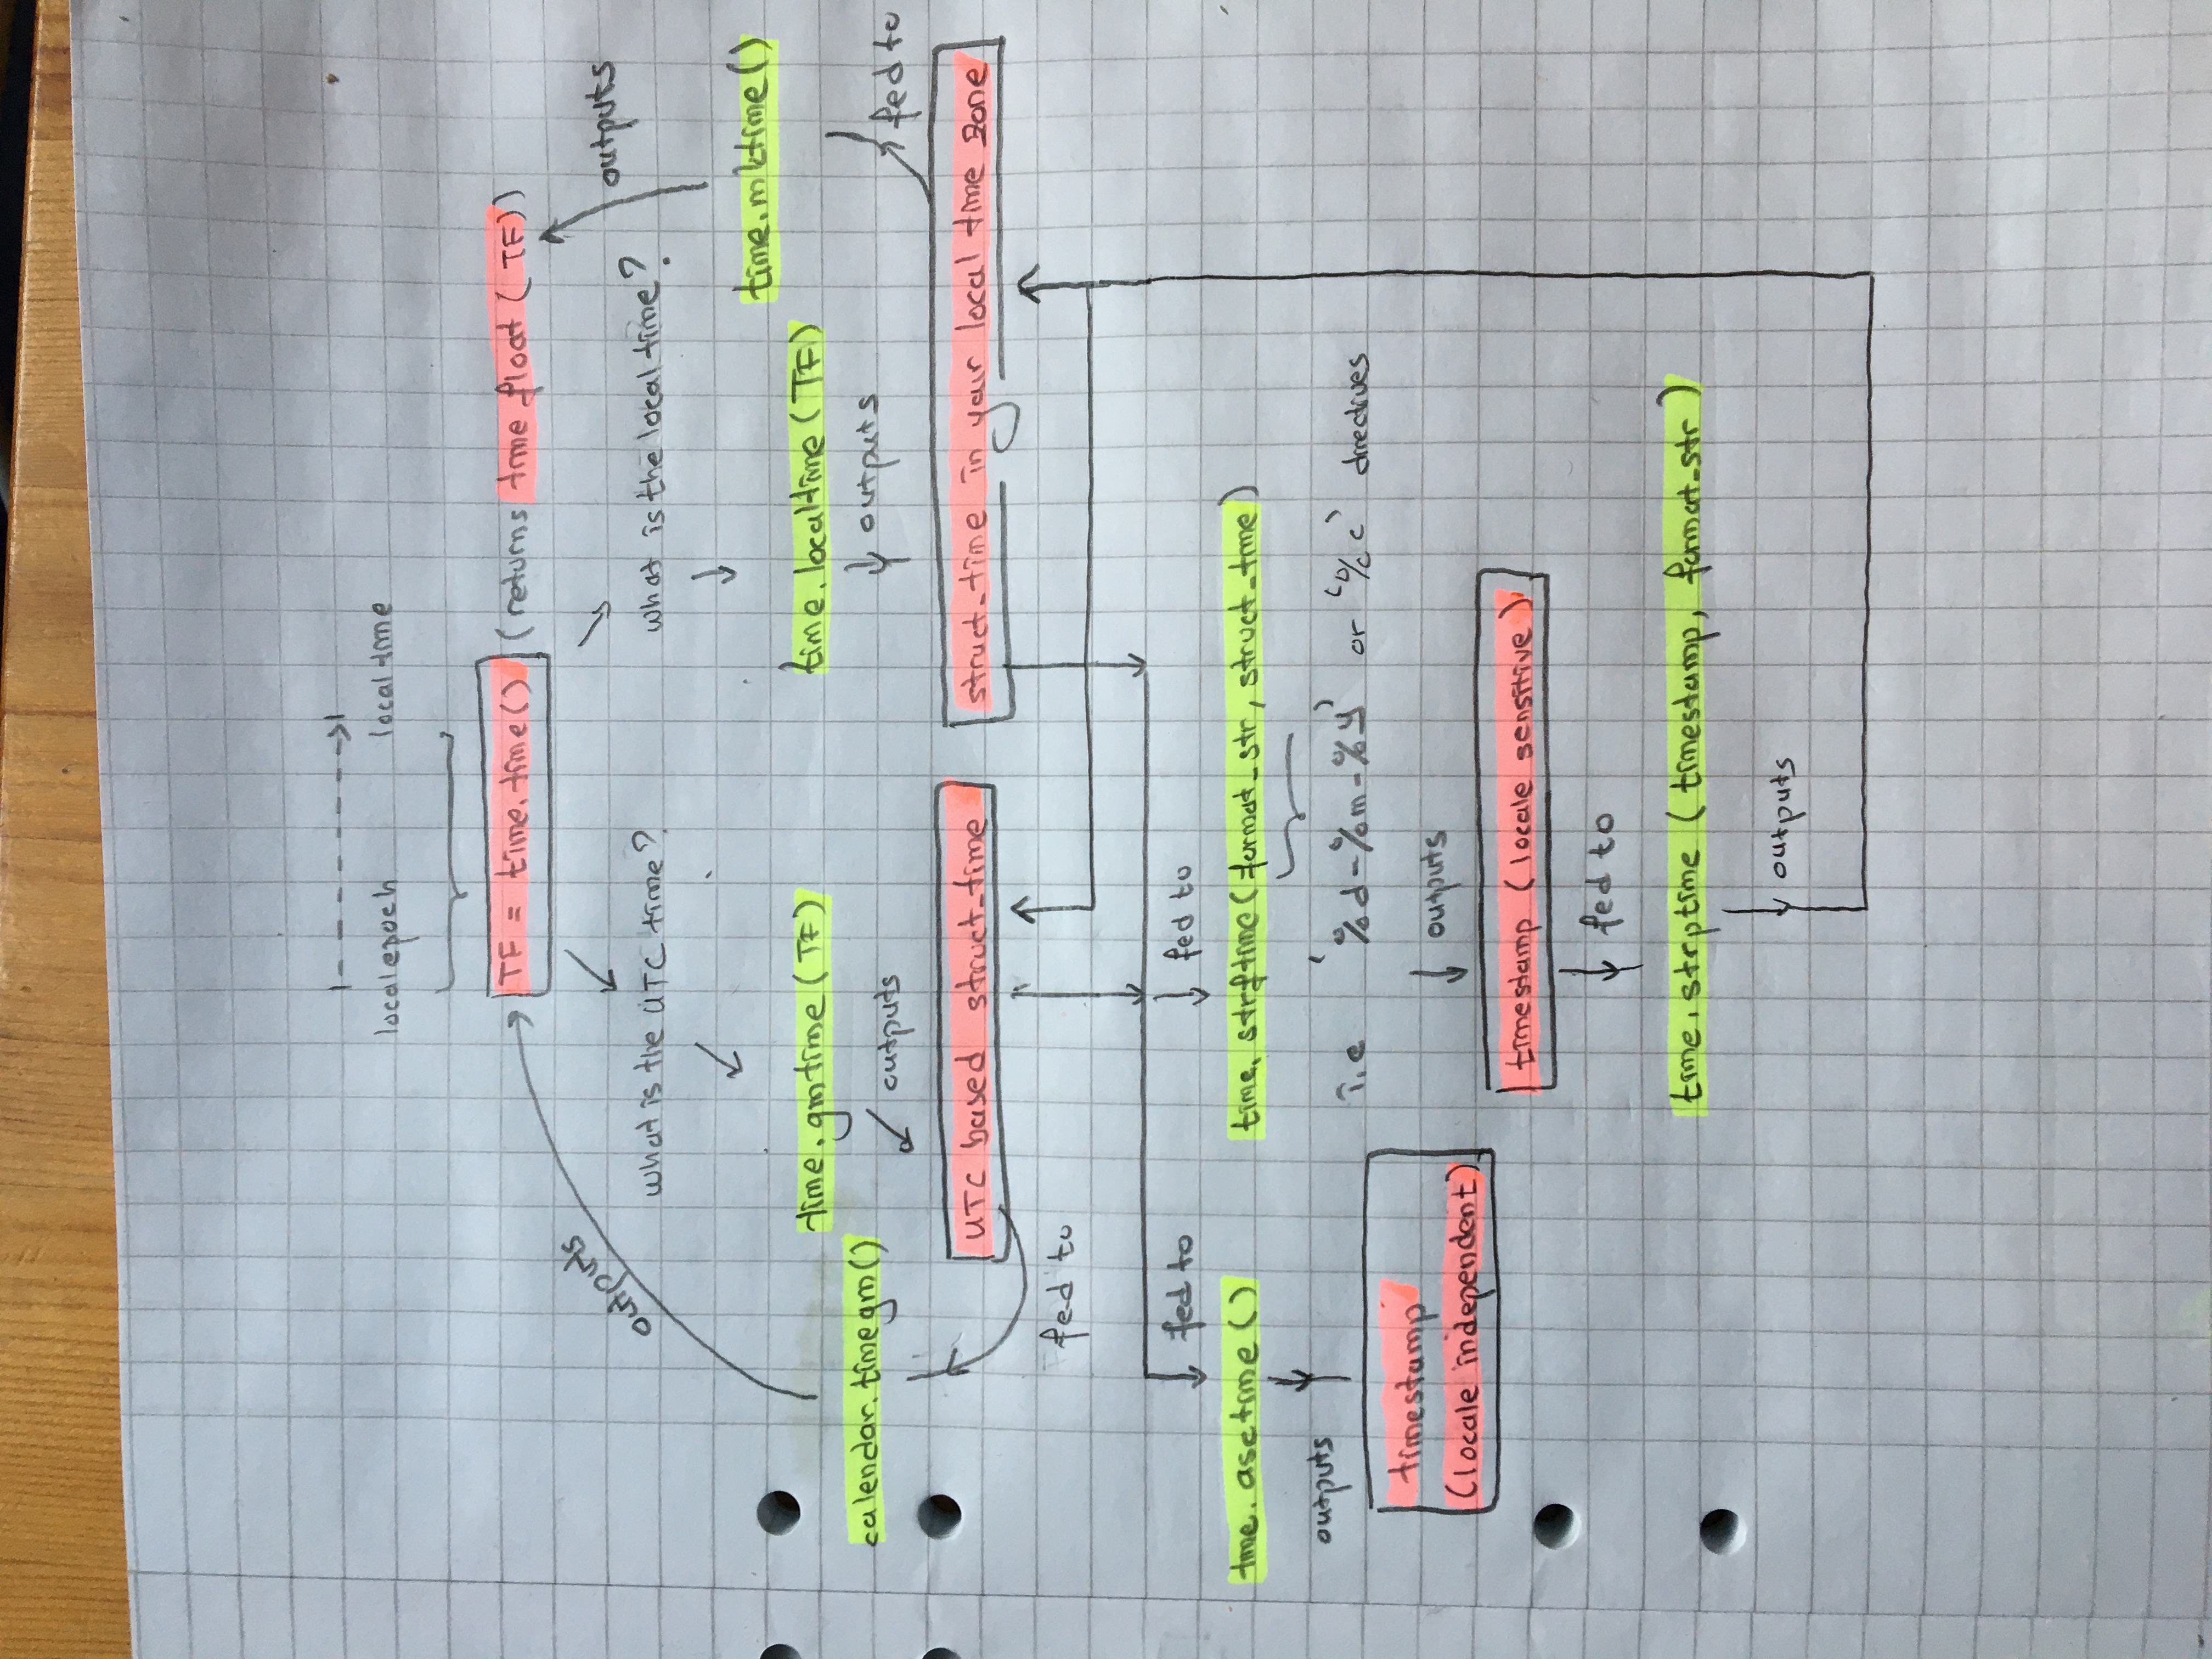 local epoch local time
TF = time.time() (returns time float (TF))
outputs
outputs
what is the UTC time? what is the local time?
time.mktime()
time.gmtime(TF) time.localtime(TF)
calendar.timegm()
outputs outputs
fed to
UTC based struct_time struct_time in your local time zone
fed to
fed to fed to
time.asctime() time.strftime(format_str, struct_time)
outputs
i.e '%d-%m-%y' or '%c' directives
timestamp
(locale independent)
outputs
timestamp (locale sensitive)
fed to
time.strptime (timestamp, format_str)
outputs